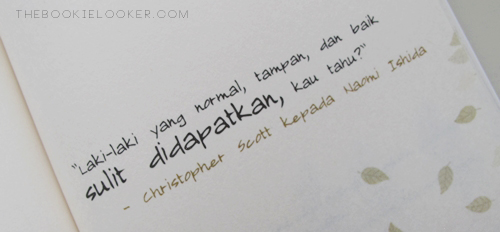 THEBOOKIELOOKER.COM
"Laki-laki yang normal, tampan, dan baik
sulit didapatkan, kau tahu?"
- Christopher Scott kepada Naomi Ishida